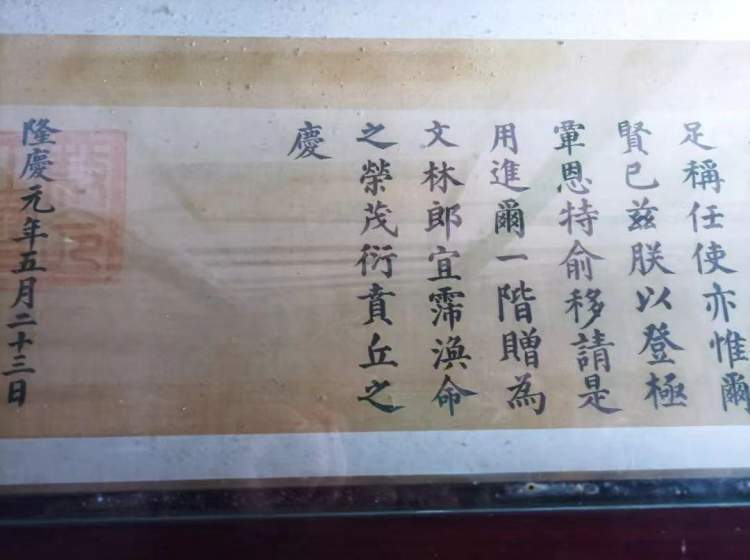 足稱任使亦惟爾
賢已兹朕以登極
覃恩特俞移請是
用進爾一階贈為
文林郎宜霈渙命
之榮茂衍賁丘之
慶
隆慶元年五月二十三日